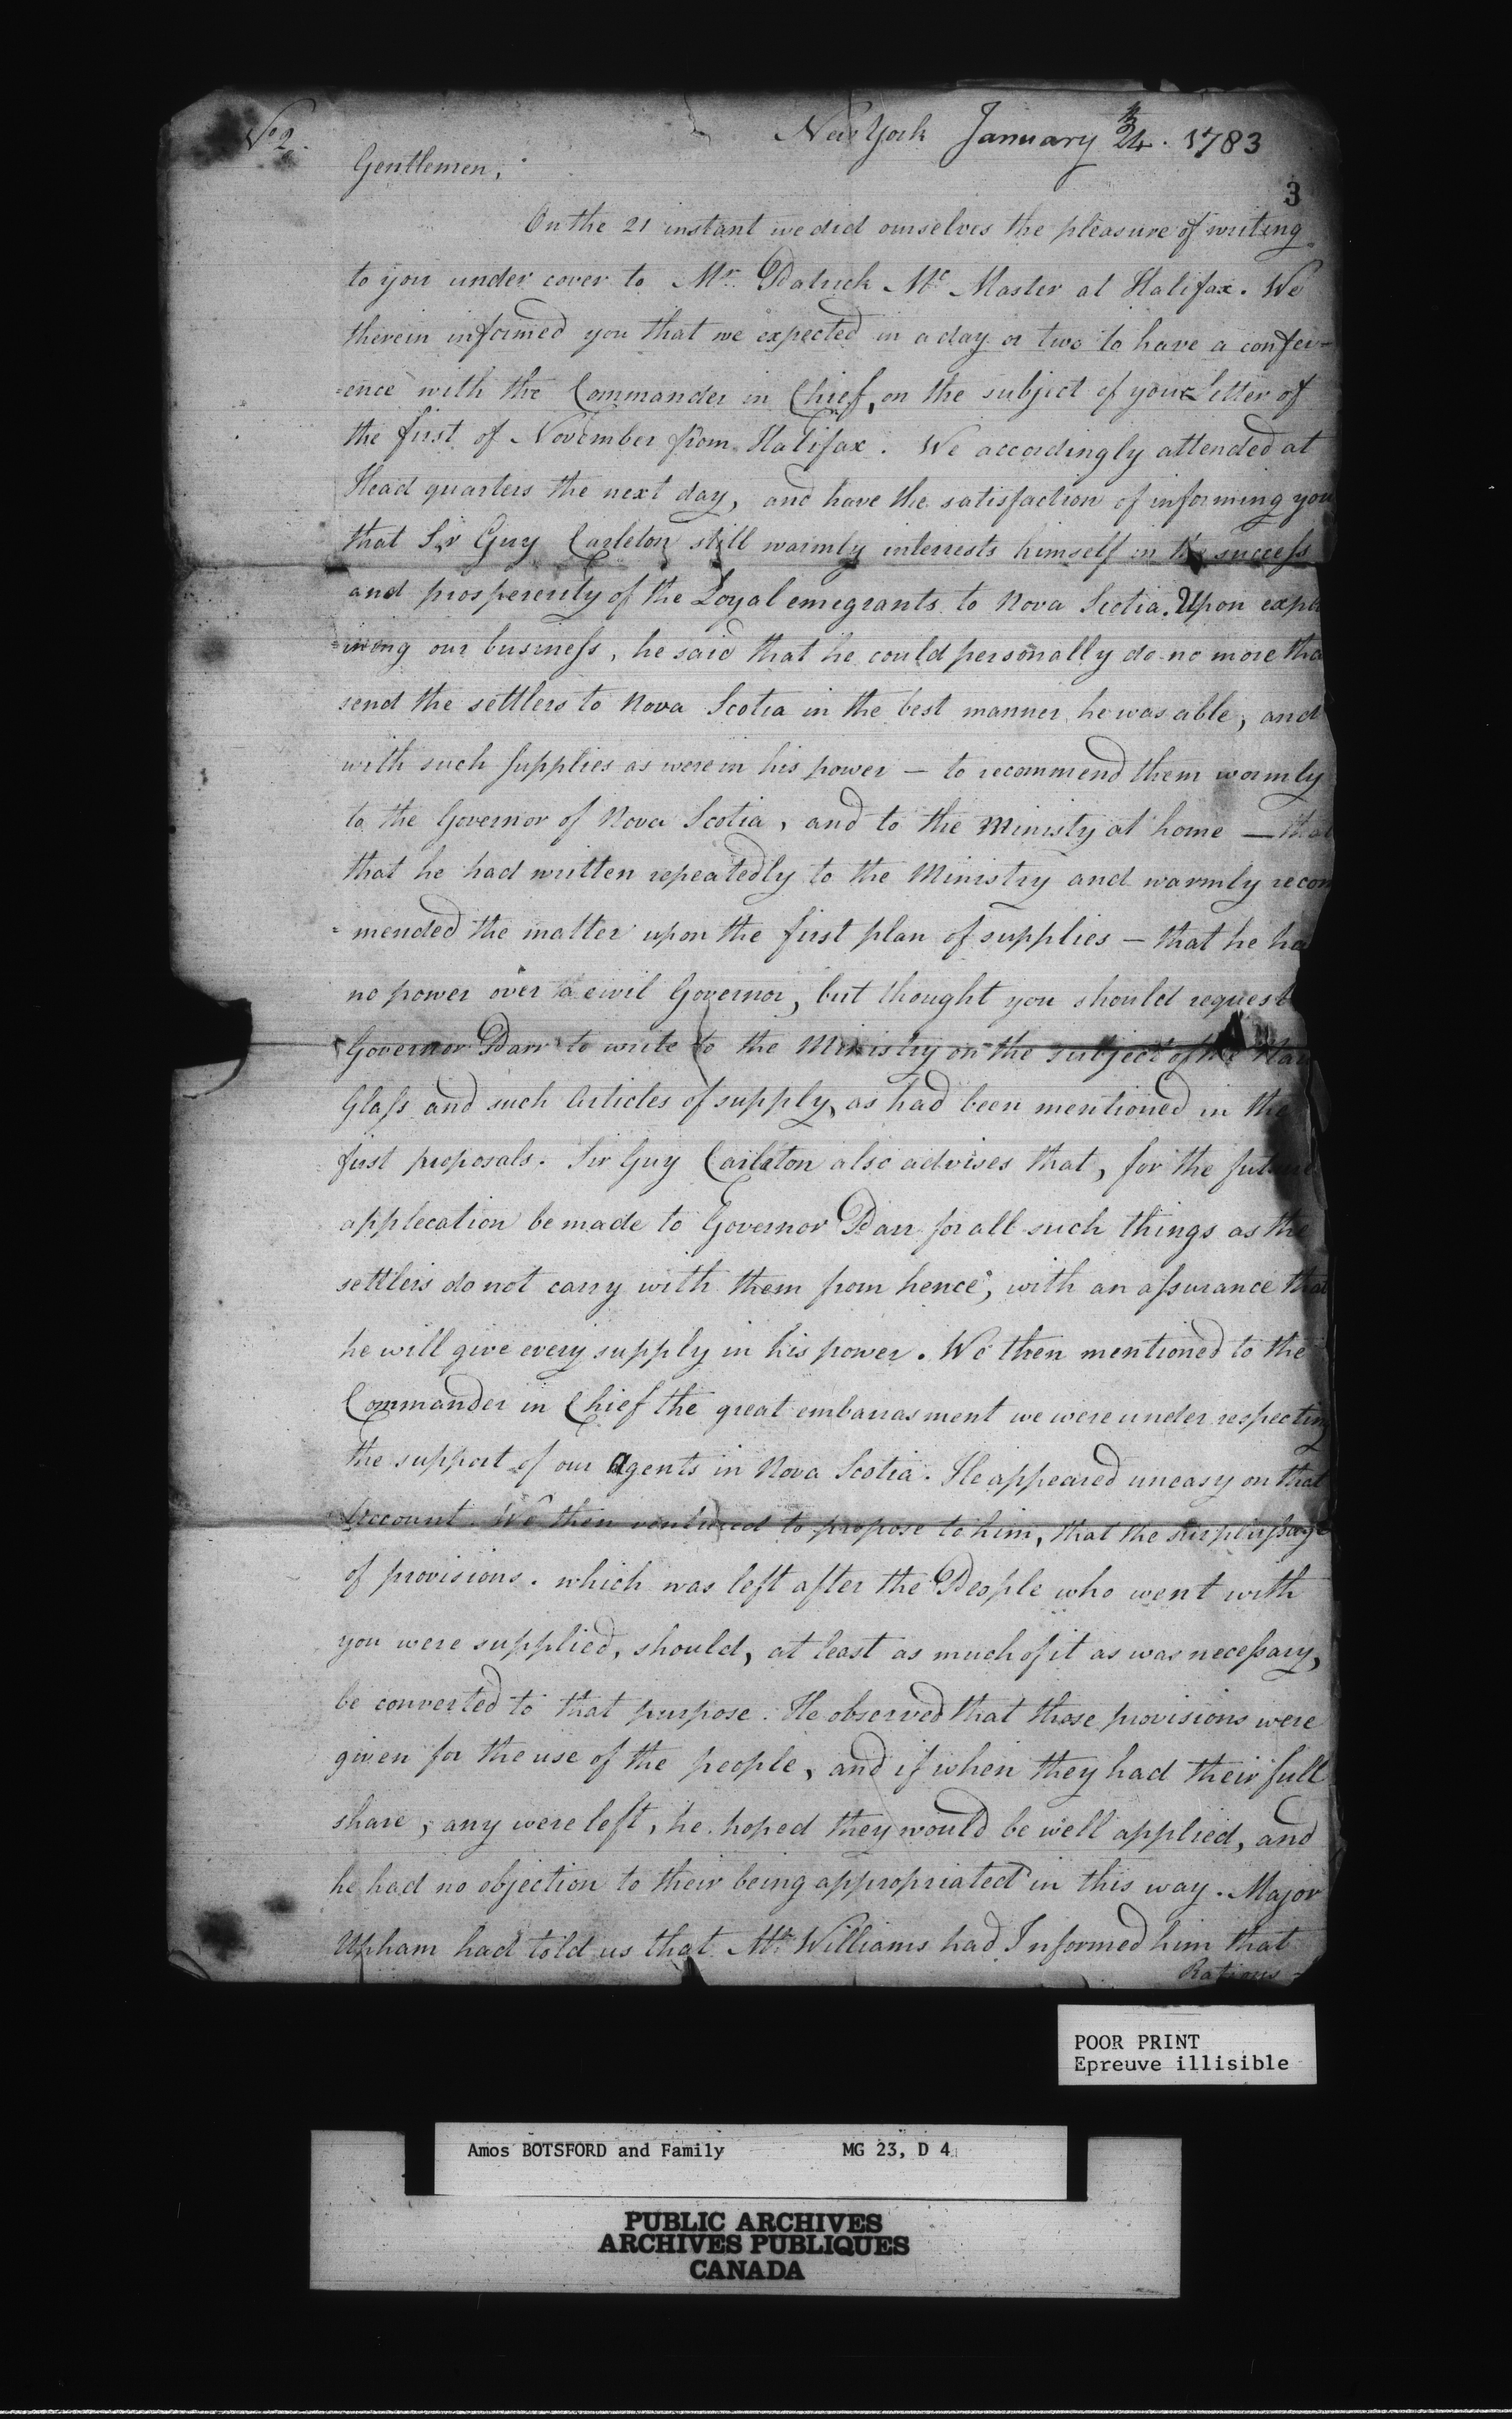 No 2.
New York January 24th. 1783
3
Gentlemen,
On the 21 instant we did ourselves the pleasure of writing
to you under cover to Mr. Patrick Mc Master at Halifax. We
therein informed you that we expected in a day or two to have a confer-
=ence with the Commander in Chief, on the subject of your Letter of
the first of November from Halifax. We accordingly attended at
Head quarters the next day, and have the satisfaction of informing you
that Sir Guy Carleton still warmly interrests himself in the success
and prospererity of the Loyal emegrants to Nova Scotia. Upon expla
=ining our business, he said that he could personally do no more tha
send the settlers to Nova Scotia in the best manner he was able, and
with such supplies as were in his power — to recommend them warmly
to the Governor of Nova Scotia, and to the Ministy at home — that
that he had written repeatedly to the Ministry and warmly recom
=mended the matter upon the first plan of supplies — that he ha
no power over a civil Governor, but thought you should request
Governor Parr to write to the Ministry on the subject of the
Glass and such Articles of supply, as had been mentioned in the
first proposals. Sir Guy Carleton also advises that, for the future
applecation be made to Governor Parr for all such things as the
settlers do not carry with them from hence, with an assurance that
he will give every supply in his power. We then mentioned to the
Commander in Chief the great embarrasment we were under respecting
the support of our Agents in Nova Scotia. He appeared uneasy on that
Account. We then ventured to propose to him, that the surplussage
of provisions. which was left after the People who went with
you were supplied, should, at least as much of it as was necessary,
be converted to that purpose. He observed that those provisions were
given for the use of the people, and if when they had their full
share, any were left, he hoped they would be well applied, and
he had no objection to their being appropriated in this way. Major
Upham had told us that Mr. Williams had Informed him that
Rations
POOR PRINT
Epreuve illisible
Amos BOTSFORD and Family MG 23, D 4
PUBLIC ARCHIVES
ARCHIVES PUBLIQUES
CANADA